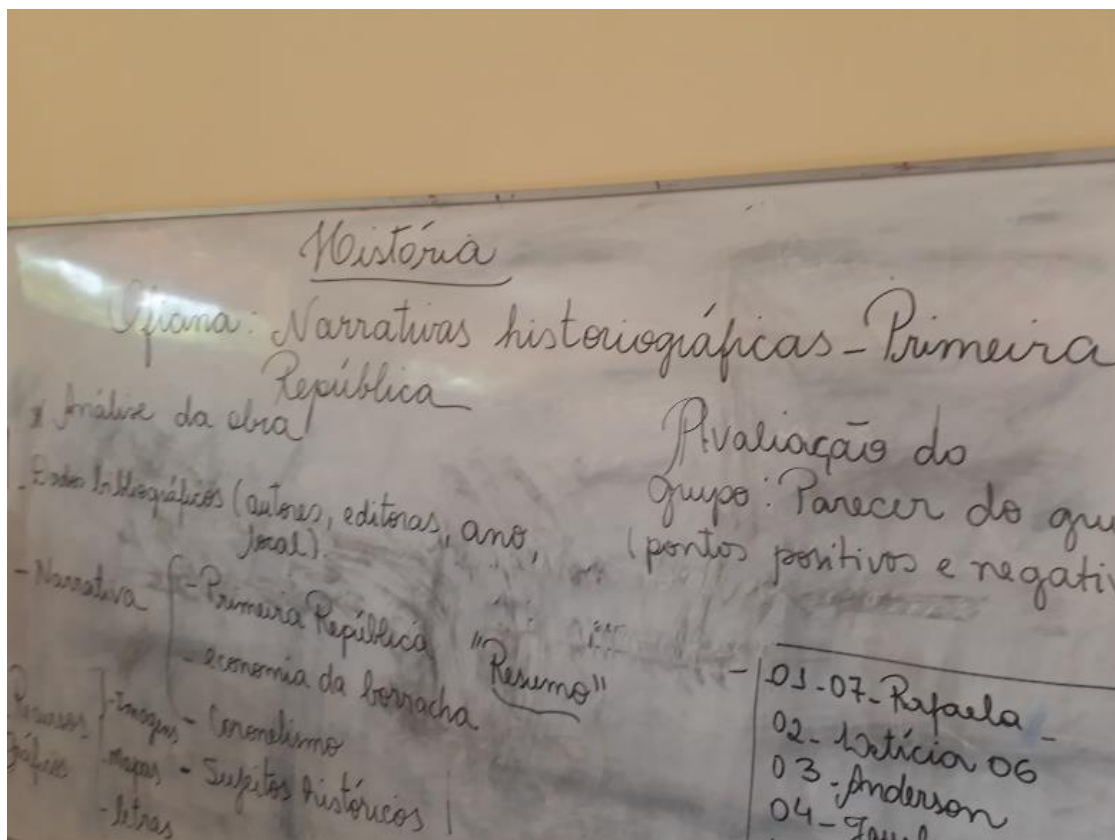 História
Oficina: Narrativas historiográficas - Primeira
República
* Análise da obra
- Dados bibliográficos (autores, editoras, ano,
local).
- Narrativa - Primeira República "Resumo"
- economia da borracha
- Coronelismo
- Sujeitos históricos
Recursos
gráficos
- Imagens
- mapas
- letras
Avaliação do
grupo: Parecer do
(pontos positivos e
- 01-07-Rafaela -
02-Letícia 06
03-Anderson
04-